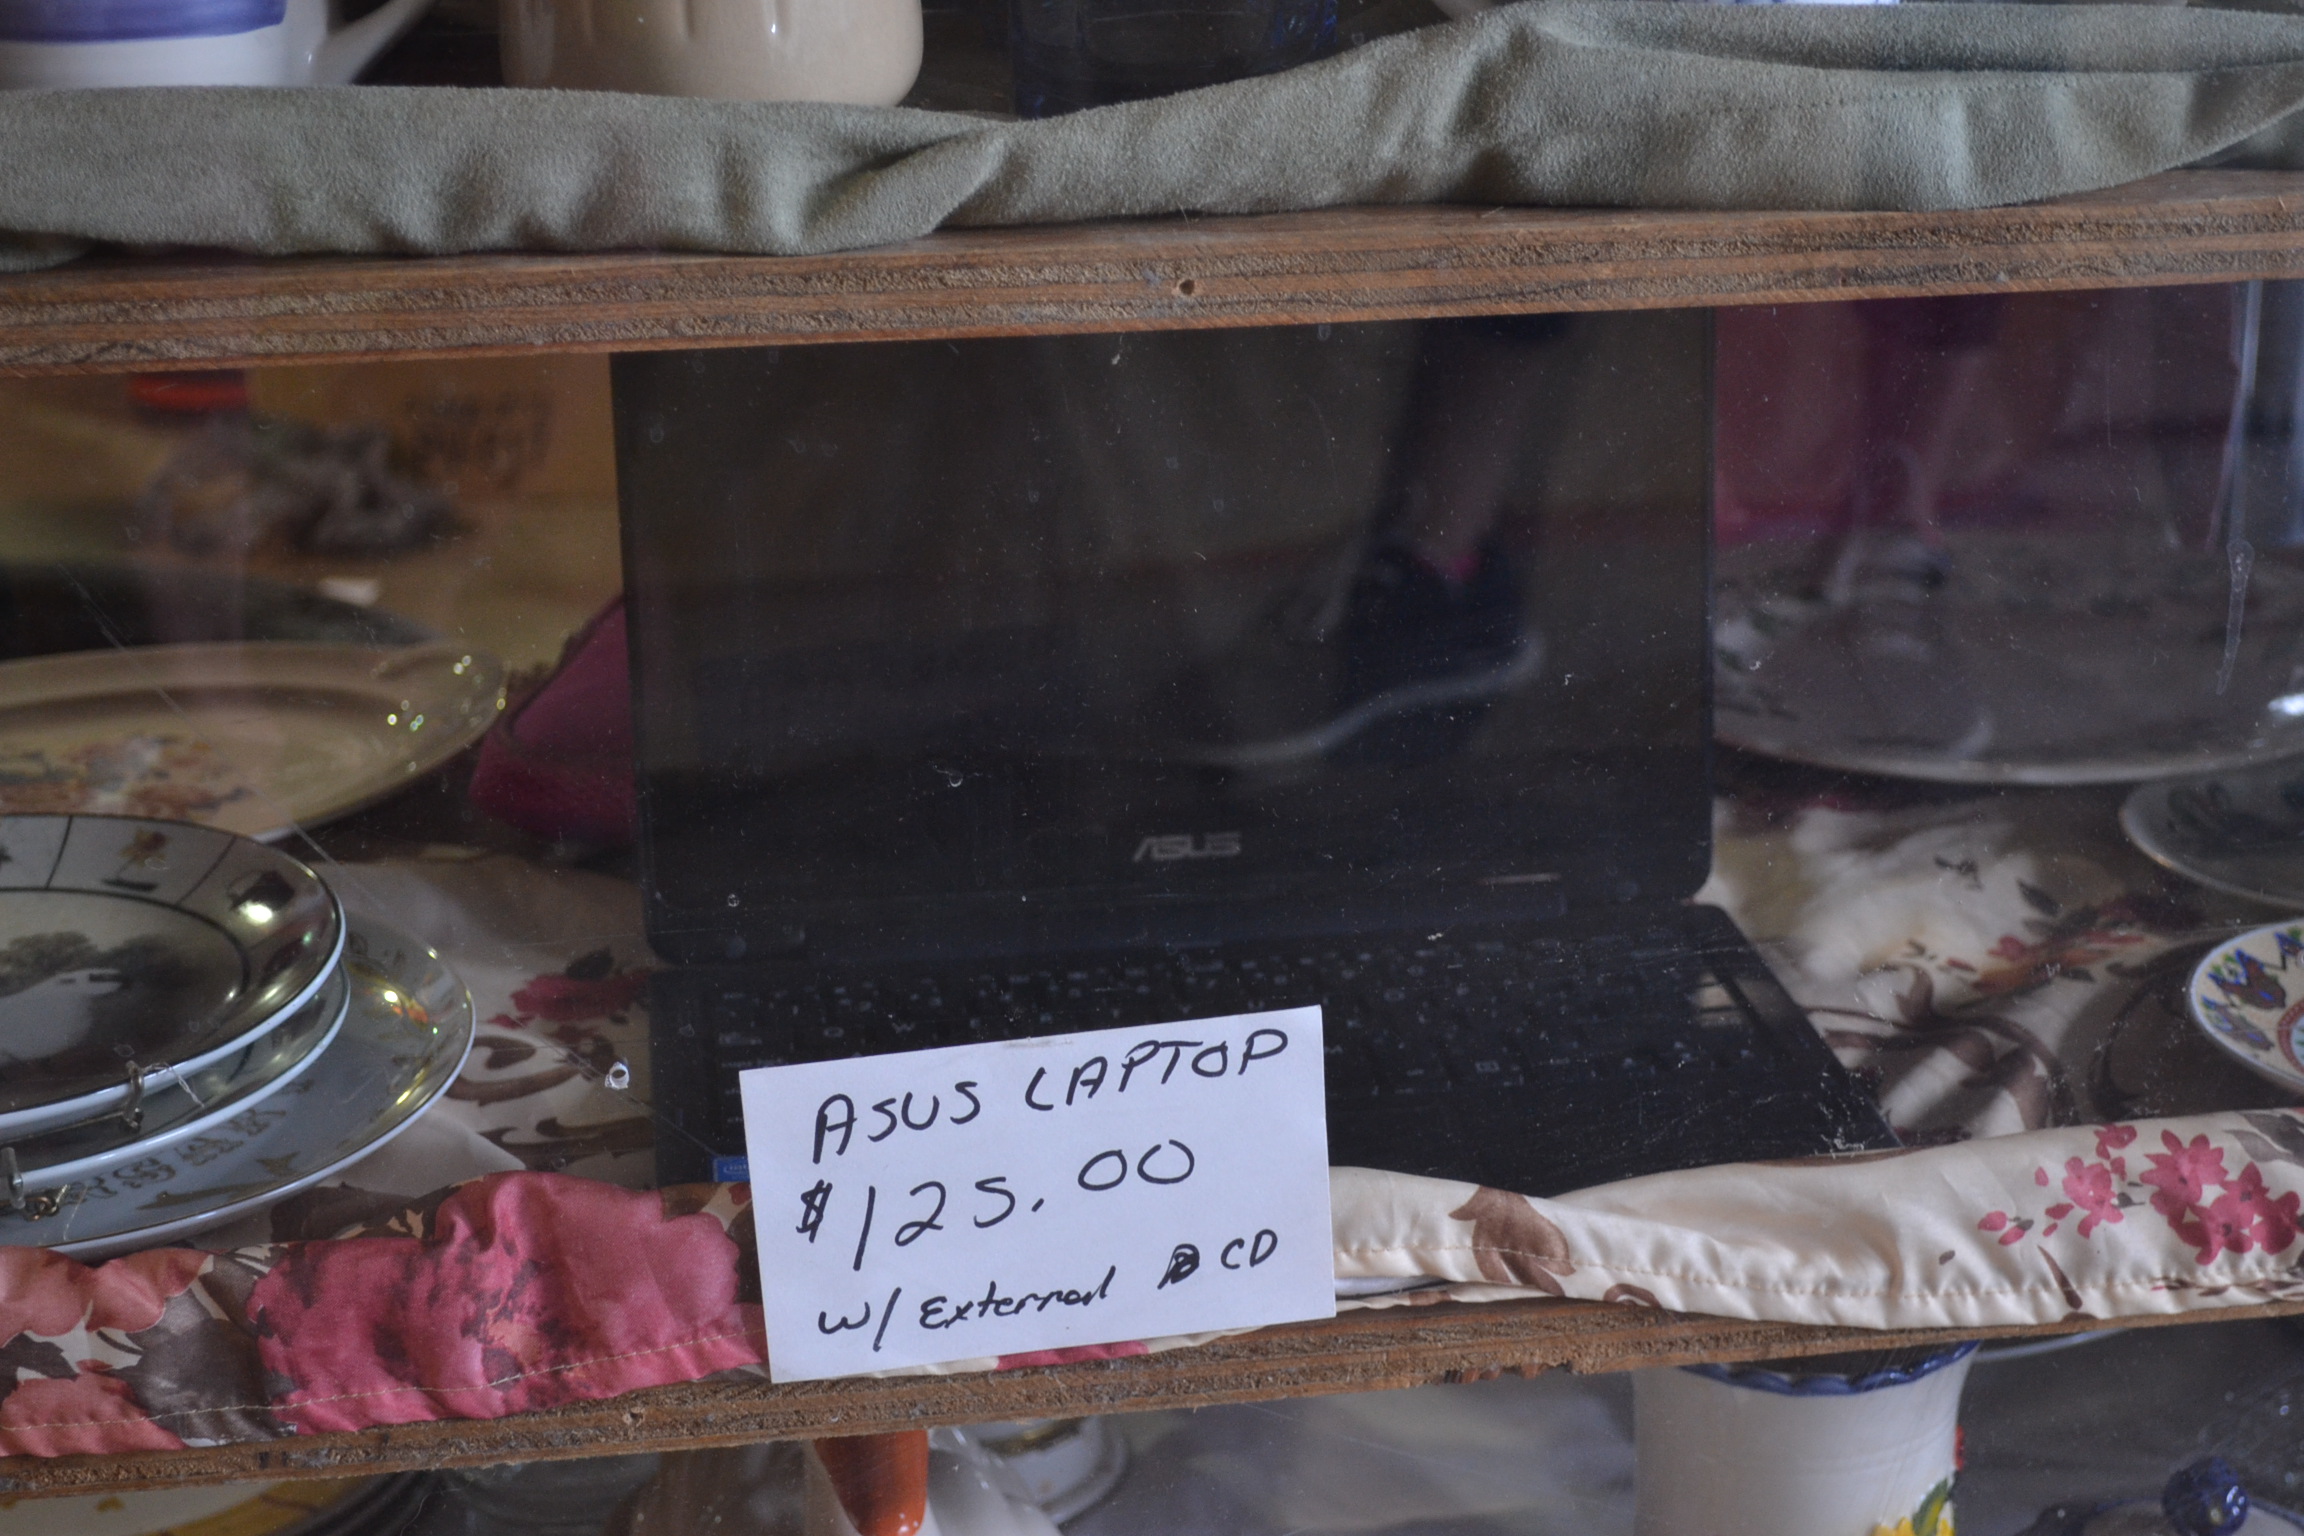 ASUS
ASUS LAPTOP
$125.00
w/ External CD